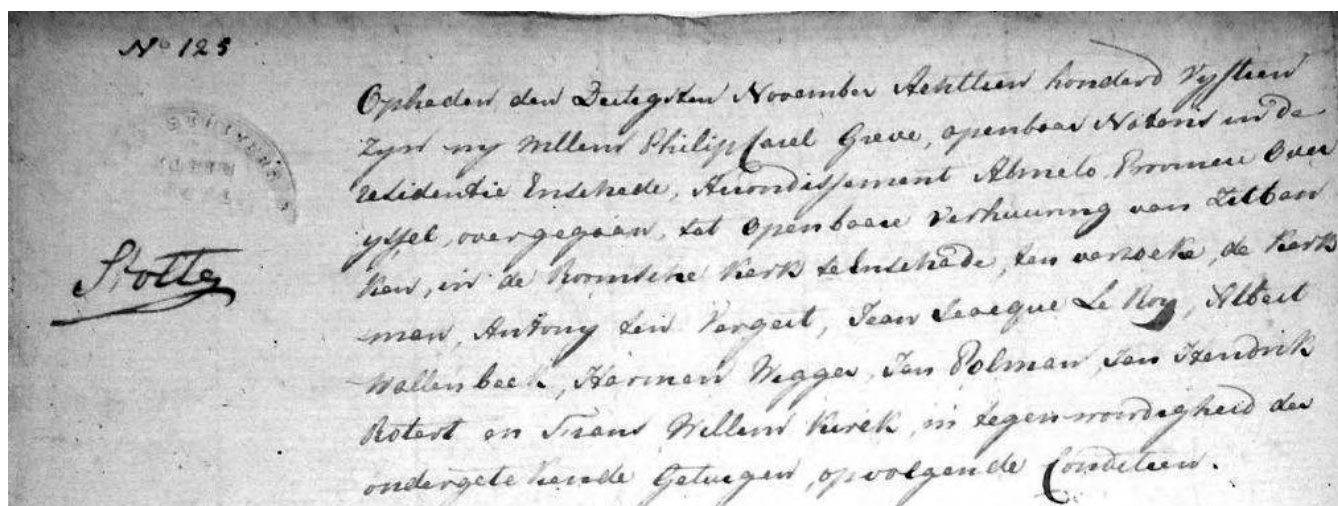 No 125
Opheden den Dertigsten November Achttien honderd Vyftien
Zyn wy Willem Philip Carel Greve, openbaar Notaris in de
residentie Enschede, Arrondissement Almelo Provincie Over
yssel, overgegaan, tot openbaare Verhuuring van Zitban
ken, in de Roomsche Kerk te Enschede, ten verzoeke, de Kerk
man, Antony ten Vergert, Jean Jacque Le Roy, Albert
Wallenbeek, Harmen Wegger, Jan Polman, Jan Hendrik
Rotert en Frans Willem Kerek, in tegenwoordigheid der
ondergetekende Getuigen, op volgende Conditien.
Stolte